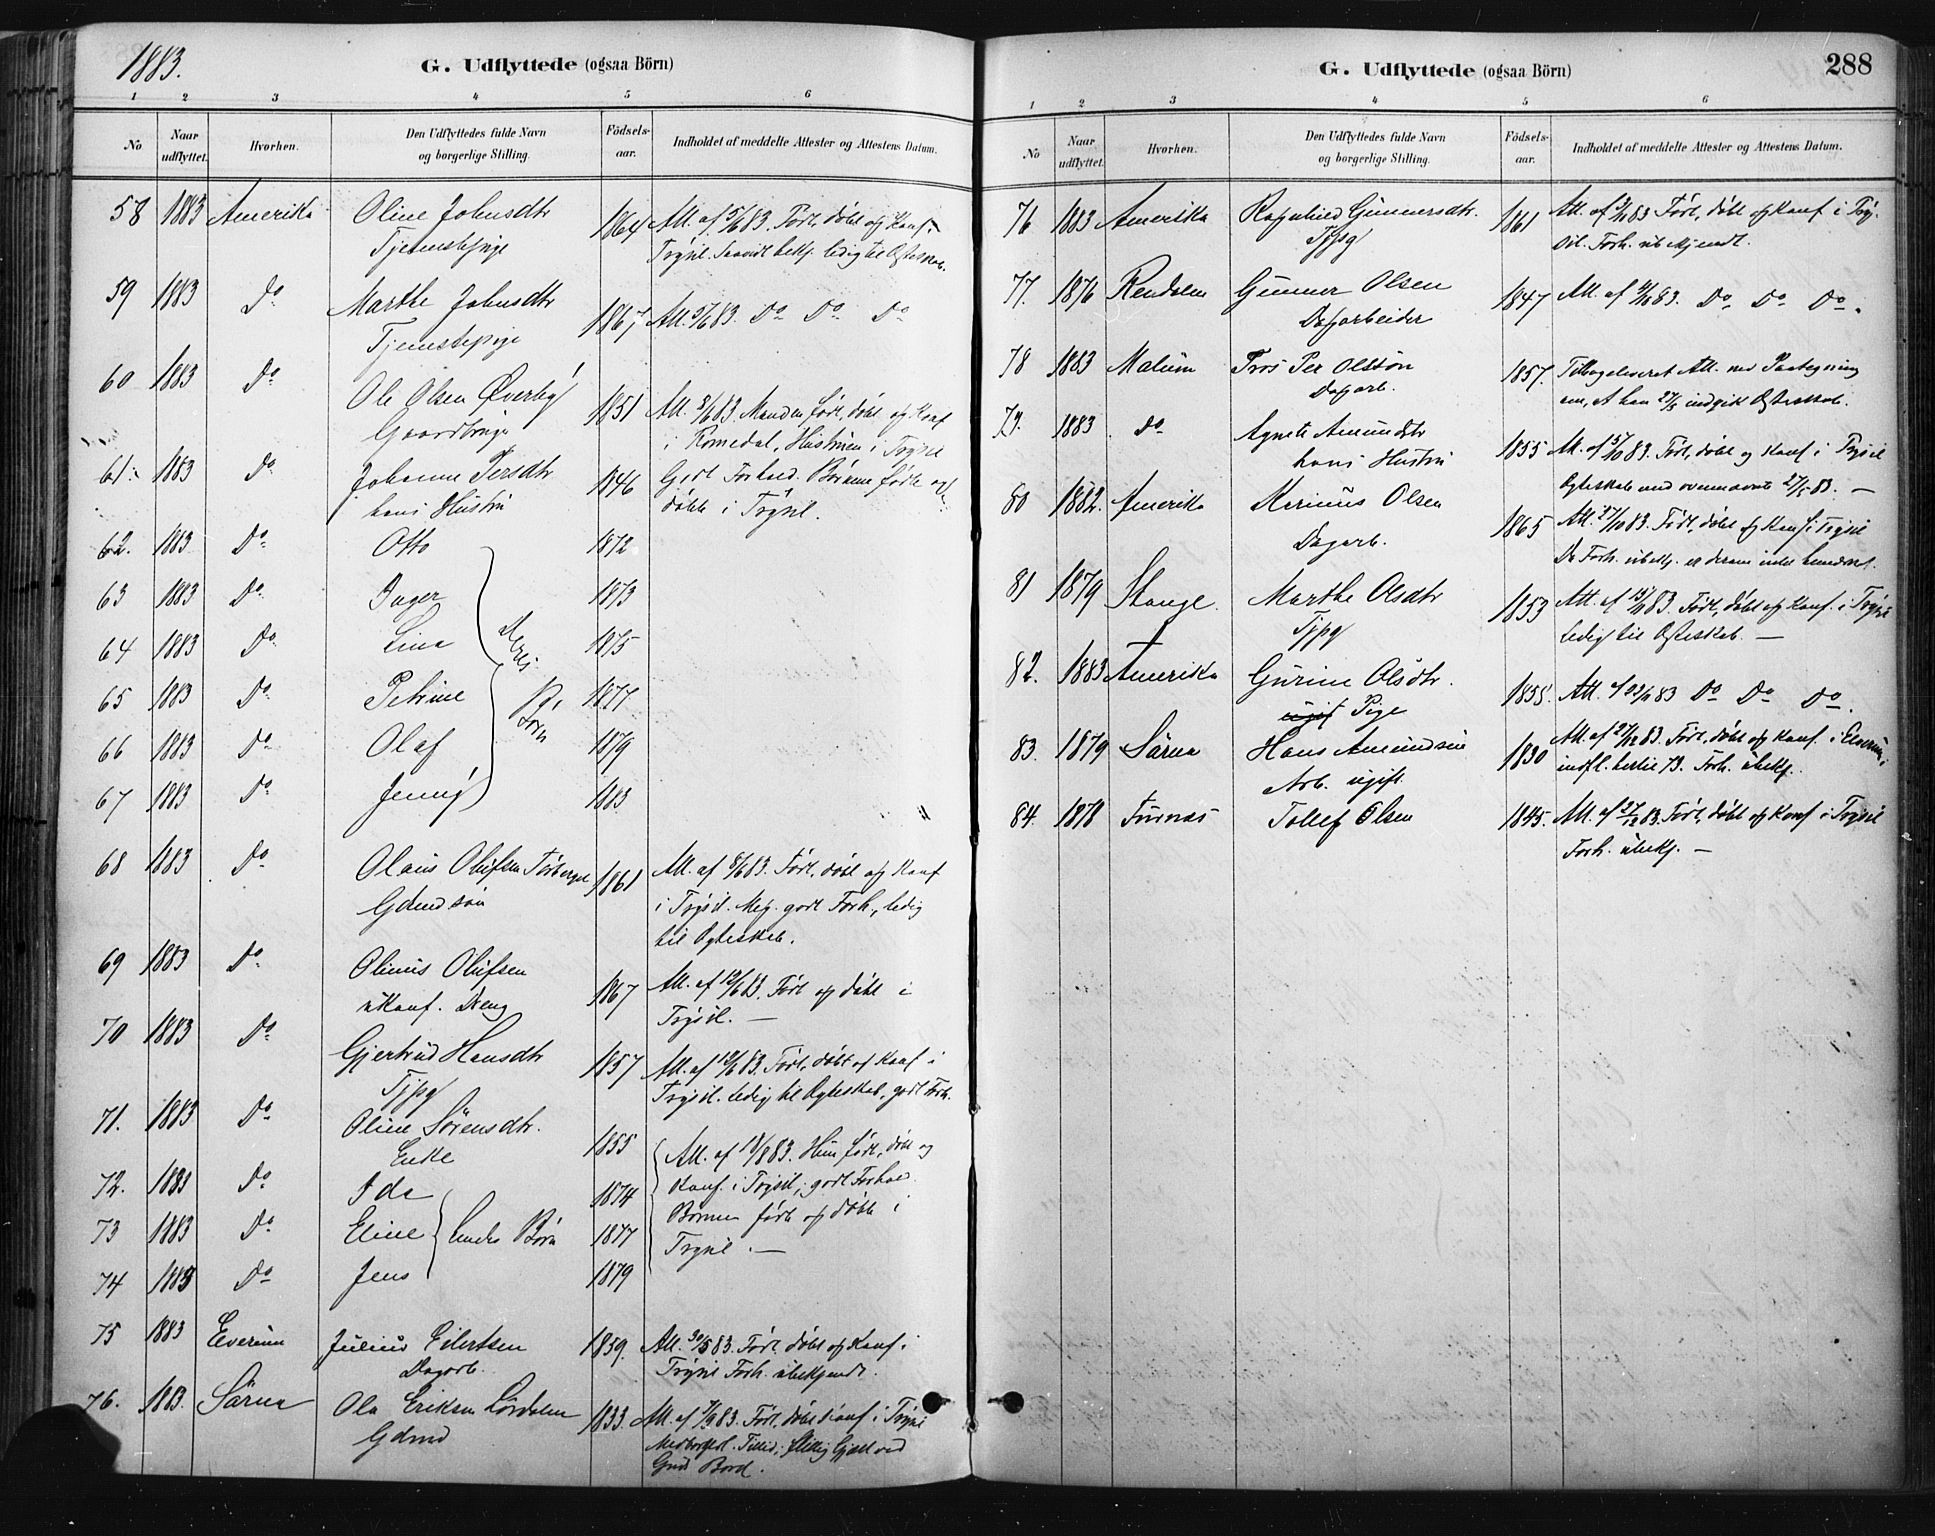 1883.
G. Udflyttede (ogsaa Börn)
1 2 3 4 5 6
No
Naar udflyttet.
Hvorhen.
Den Udflyttedes fulde Navn og borgerlige Stilling.
Födsels-aar.
Indholdet af meddelte Attester og Attestens Datum.
58 1883 Amerika Oline Johnsdtr 1864 Att. af 5/6 83. Født, døbt og Konf. i
Tjenestepige Trysil. Saavidt bekj. ledig til Ægteskab.
59 1883 Do Marthe Johnsdtr 1867 Att. 5/6 83. Do Do Do
Tjenestepige
60 1883 Do Ole Olsen Øverby 1851 Att. 8/6 83 Manden født, døbt og Konf
Gaardbruger i Romedal, Hustruen i Trysil
61. 1883 Do Johanne Persdtr 1846 Godt Forhold. Børnene fødte og
hans Hustru døbte i Trysil.
62. 1883 Do Otto 1872
63 1883 Do Inger 1873
64 1883 Do Lina 1875
Deres
65 1883 Do Petrine 1877
Børn
66 1883 Do Olaf 1879
67 1883 Do Jenny 1883
68 1883 Do Olaus Olufsen Torberget 1861 Att. af 8/6 83. Født, døbt og Konf
Gdmdsøn i Trysil. Meg. godt Forh., ledig
til Ægteskab.
69 1883 Do Olinus Olufsen 1867 Att. af 12/6 83. Født og døbt i
ukonf. Dreng Trysil. —
70 1883 Do Gjertrud Hansdtr 1857 Att. af 12/6 83. Født, døbt og Konf i
Tjpg Trysil. Ledig til Ægteskab, godt Forh.
71. 1883 Do Oline Sørensdtr. 1855 Att. af 18/8 83. Hun født, døbt og
Enke Konf. i Trysil, godt Forhold.
72. 1883 Do Ida 1874 Børnene fødte og døbte i
73 1883 Do Eline 1877 Trysil. —
Hendes Børn
74 1883 Do Jens 1879
75 1883 Elverum Julius Eilertsen 1859. Att. 30/8 83. Født døbt og Konf. i
Dagarb. Trysil Forh. ubekjendt.
76. 1883. Särna Ole Eriksen Lørdalen 1833. Att. af 7/9 83. Født, døbt Konf i Trysil
Gdmd
Guds Bord.
G. Udflyttede (ogsaa Börn)
288
1 2 3 4 5 6
No
Naar udflyttet.
Hvorhen.
Den Udflyttedes fulde Navn og borgerlige Stilling.
Födsels-aar.
Indholdet af meddelte Attester og Attestens Datum.
76 1883 Amerika Ragnhild Gunnersdtr. 1861 Født, døbt og Konf i Try-
Tjpg sil. Forh. ubekjendt.
77. 1876 Rendalen Gunner Olsen 1847 Att. af 4/10 83. Do Do Do.
Dagarbeider
78 1883 Malum Per Olssøn 1857. Tilbageleveret Att. med Paategning
Dagarb. om, at han 27/5 indgik Ægteskab.
79. 1883 Do Agnete Amundsdtr 1855 Født, døbt og Konf i Trysil
hans Hustru Ægteskab med ovennævnte 27/5 83. —
80 1882. Amerika Marinus Olsen 1865 Att. 27/10 83. Født, døbt og Konf i Trysil
Dagarb. Da Forh. ubekj. er derom intet bemærket.
81 1879 Stange Marthe Olsdtr 1853 Født, døbt og Konf. i Trysil
Tjpg Ledig til Ægteskab. —
82. 1883 Amerika Gurine Olsdtr. 1855. 83 Do Do Do.
ugift Pige
83. 1879 Särna Hans Amundsen 1830 Att. af 27/12 83. Født, døbt og Konf. i Elverum,
Arb. ugift indfl. hertil 73. Forh. ubekj.
84. 1878 Furnæs Tollef Olsen 1845. Att. af 27/12 83. Født, døbt og Konf i Trysil
Forh. ubekj. —